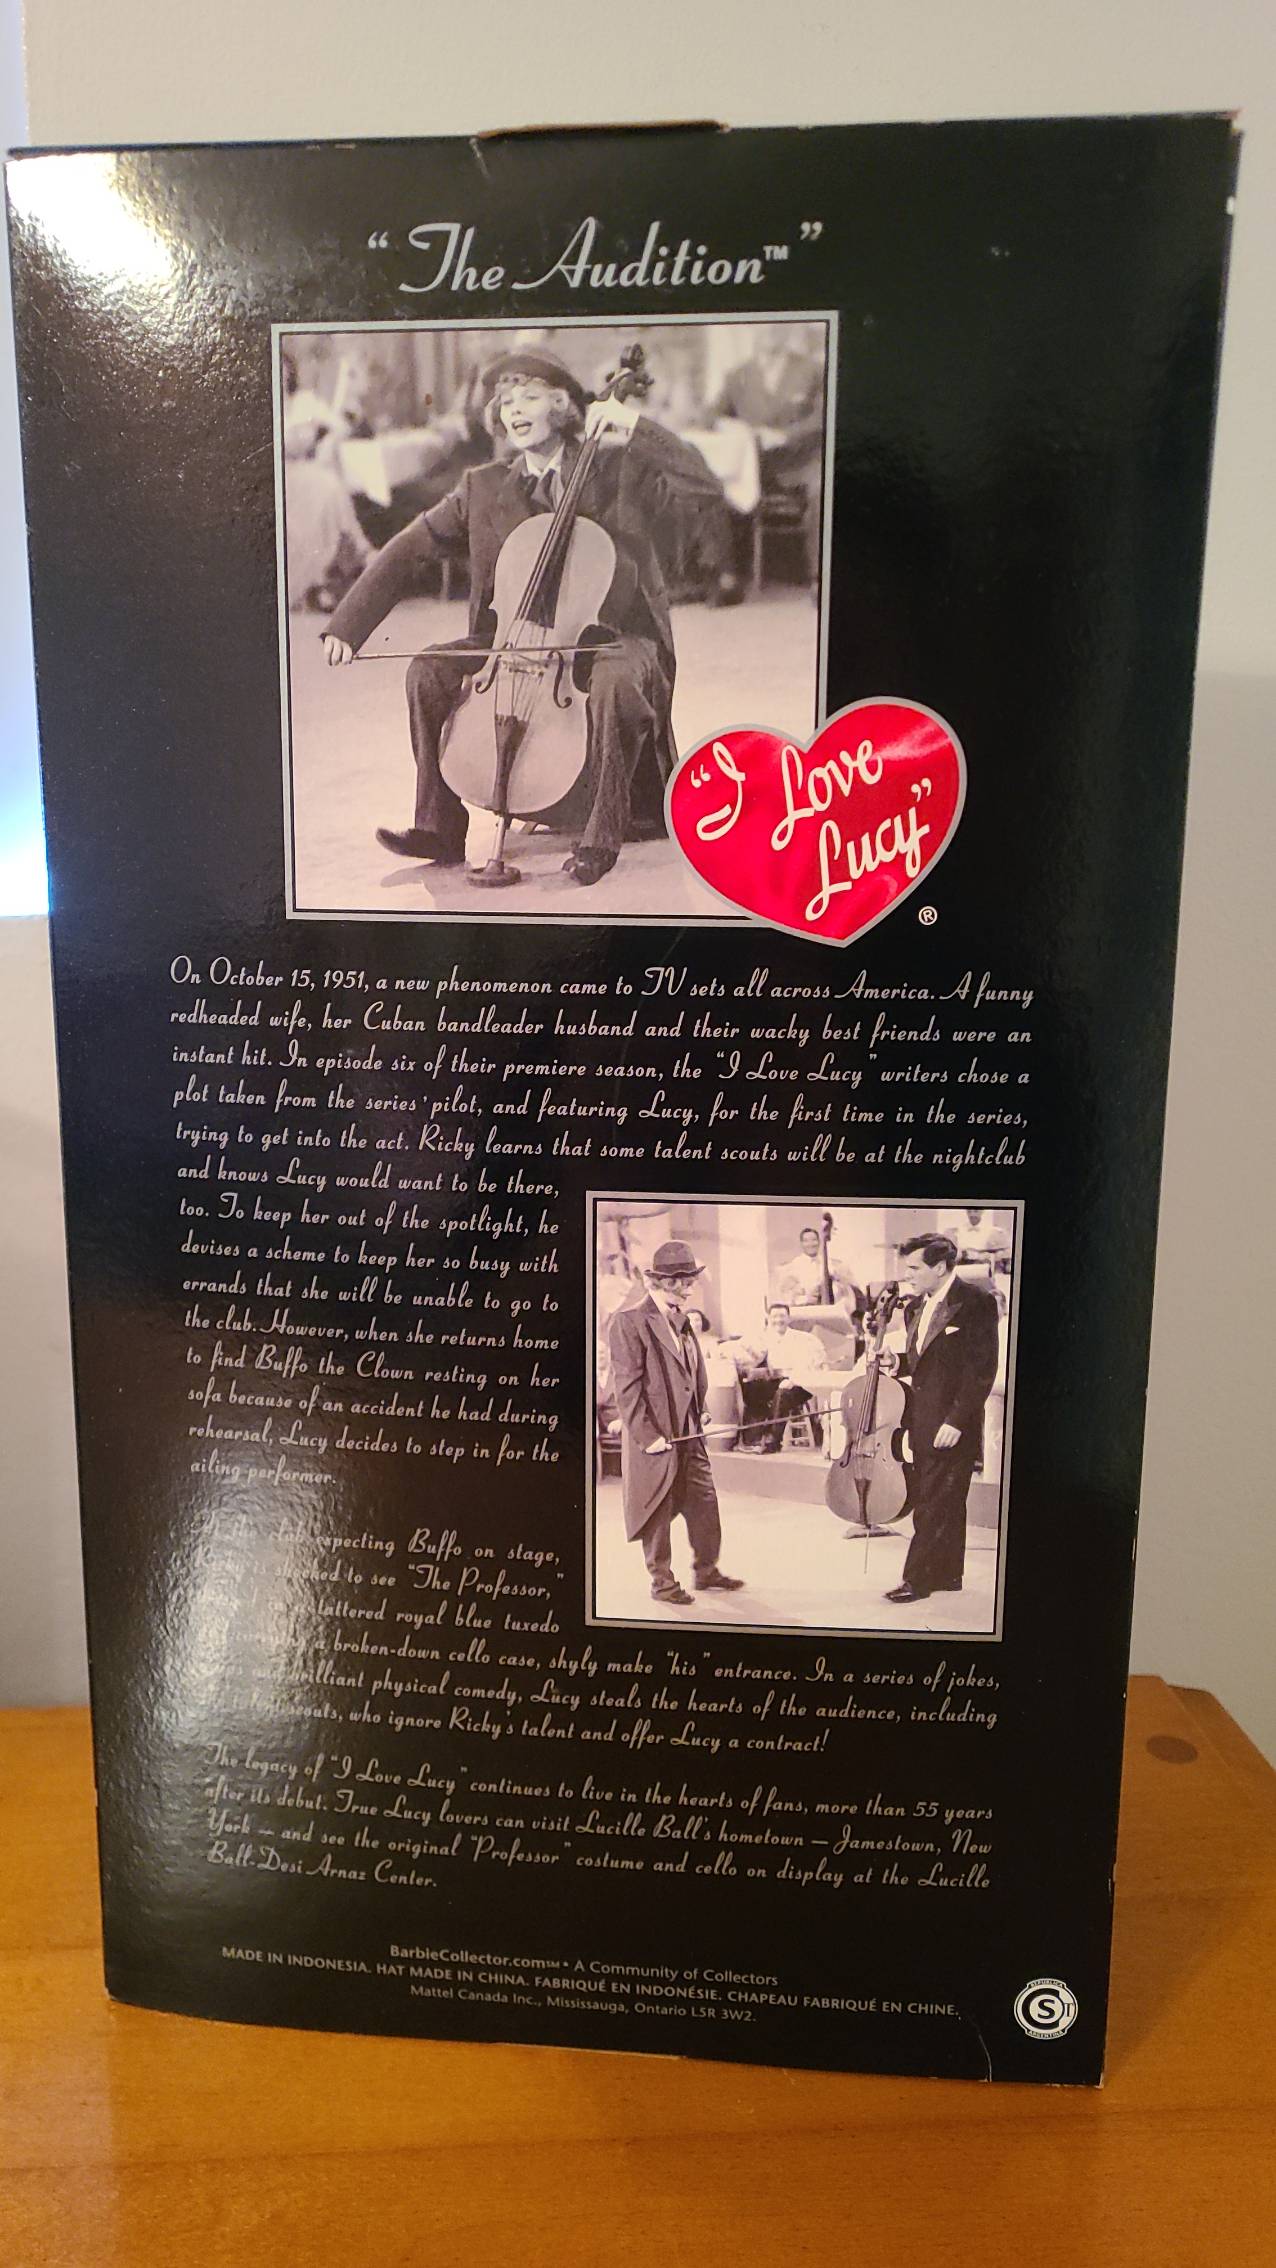 “The Audition™”
“I Love Lucy”®
On October 15, 1951, a new phenomenon came to TV sets all across America. A funny
redheaded wife, her Cuban bandleader husband and their wacky best friends were an
instant hit. In episode six of their premiere season, the “I Love Lucy” writers chose a
plot taken from the series’ pilot, and featuring Lucy, for the first time in the series,
trying to get into the act. Ricky learns that some talent scouts will be at the nightclub
and knows Lucy would want to be there,
too. To keep her out of the spotlight, he
devises a scheme to keep her so busy with
errands that she will be unable to go to
the club. However, when she returns home
to find Buffo the Clown resting on her
sofa because of an accident he had during
rehearsal, Lucy decides to step in for the
ailing performer.
expecting Buffo on stage,
shocked to see “The Professor,”
tattered royal blue tuxedo
a broken-down cello case, shyly make “his” entrance. In a series of jokes,
brilliant physical comedy, Lucy steals the hearts of the audience, including
scouts, who ignore Ricky’s talent and offer Lucy a contract!
The legacy of “I Love Lucy” continues to live in the hearts of fans, more than 55 years
after its debut. True Lucy lovers can visit Lucille Ball’s hometown — Jamestown, New
York — and see the original “Professor” costume and cello on display at the Lucille
Ball-Desi Arnaz Center.
BarbieCollector.com℠ • A Community of Collectors
MADE IN INDONESIA. HAT MADE IN CHINA. FABRIQUÉ EN INDONÉSIE. CHAPEAU FABRIQUÉ EN CHINE.
Mattel Canada Inc., Mississauga, Ontario L5R 3W2.
REPUBLICA
S
ARGENTINA